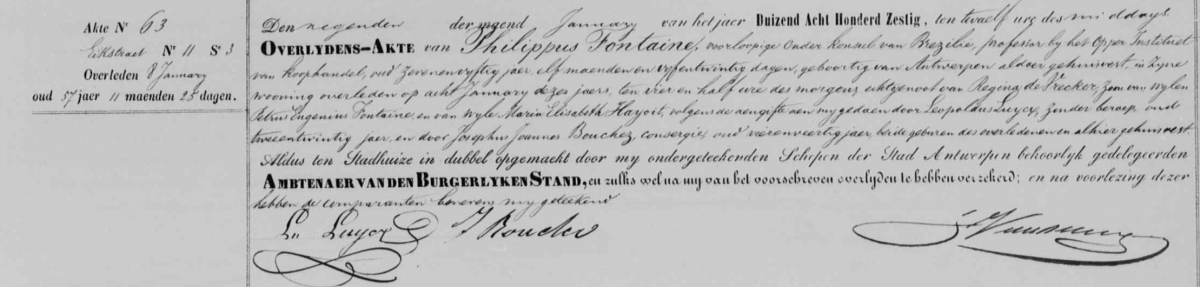 Akte N° 63
Eikstraet N° 11 S 3
Overleden 8 January
oud 57 jaer 11 maenden 25 dagen.
Den negenden der maend January van het jaer Duizend Acht Honderd Zestig, ten twaelf ure des middags
OVERLYDENS-AKTE van Philippus Fontaine, voorloopige onder konsel van Brezilie, professor by het Opper Instituet
van koophandel, oud zevenenvyftig jaer, elf maenden en vyfentwintig dagen, geboortig van Antwerpen aldaer gehuisvest, in zyne
wooning overleden op acht January dezes jaers, ten vier en half ure des morgens echtgenoot van Regina de Trecker, zoon van wylen
Petrus Eugenius Fontaine, en van wyle Maria Elisabeth Hayoit, volgens de aengifte aen my gedaen door Leopoldus Luycx, zonder beroep oud
tweeentwintig jaer, en door Josephus Joannes Bouchez, consergie, oud vierenveertig jaer beide geburen des overledenen en alhier gehuisvest.
Aldus ten Stadhuize in dubbel opgemaekt door my ondergeteekenden Schepen der Stad Antwerpen behoorlyk gedelegeerden
AMBTENAER VAN DEN BURGERLYKEN STAND, en zulks wel na my van het voorschreven overlyden te hebben verzekerd; en na voorlezing dezer
hebben de comparanten benevens my geteekend
L. Luycx J Bouchez